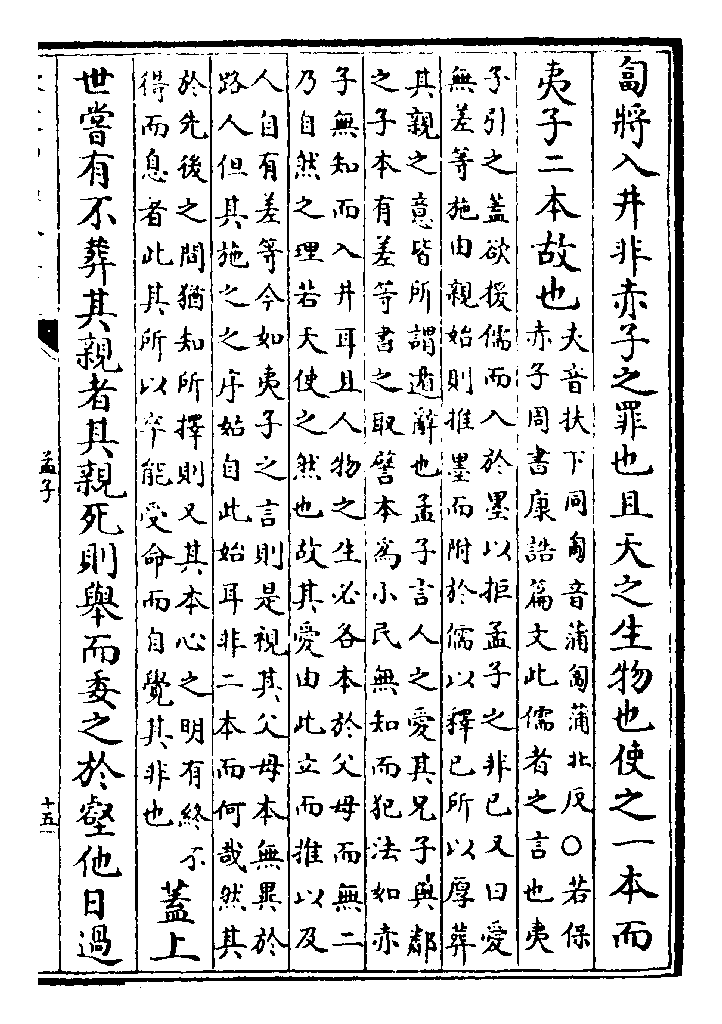 匐將入井非赤子之罪也且天之生物也使之一本而
夷子二本故也夫音扶下同匍音蒲匐蒲北反○若保
赤子周書康誥篇文此儒者之言也夷
子引之蓋欲援儒而入於墨以拒孟子之非已又曰愛
無差等施由親始則推墨而附於儒以釋已所以厚葬
其親之意皆所謂遁辭也孟子言人之愛其兄子與鄰
之子本有差等書之取譬本為小民無知而犯法如赤
子無知而入井耳且人物之生必各本於父母而無二
乃自然之理若天使之然也故其愛由此立而推以及
人自有差等今如夷子之言則是視其父母本無異於
路人但其施之之序姑自此始耳非二本而何哉然其
於先後之間猶知所擇則又其本心之明有終不
得而息者此其所以卒能受命而自覺其非也
蓋上
世嘗有不葬其親者其親死則舉而委之於壑他日過
孟子
十五